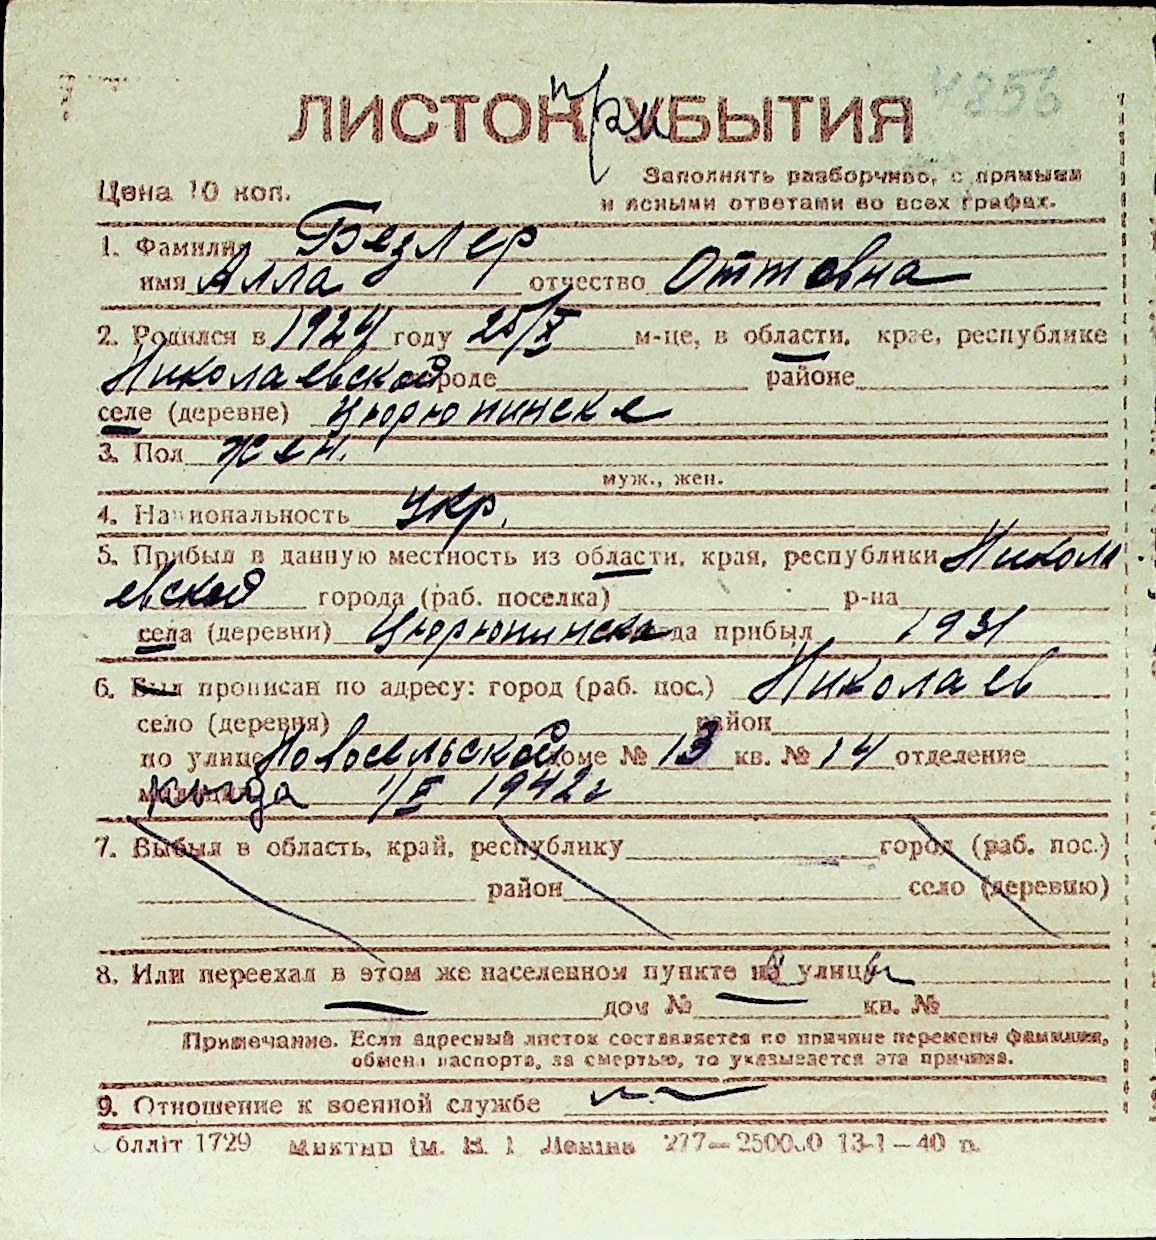 4856
ЛИСТОК УБЫТИЯ
при
Цена 10 коп.
Заполнять разборчиво, с прямыми
и ясными ответами во всех графах.
1. Фамилия Безлер
имя Алла отчество Оттовна
2. Родился в 1924 году 25/X м-це, в области, крае, республике
Николаевской городе районе
селе (деревне) Цюрюпинске
3. Пол жен.
муж., жен.
4. Национальность Укр.
5. Прибыл в данную местность из области, края, республики Никола
евской города (раб. поселка) р-на
села (деревни) Цюрюпинска когда прибыл 1931
6. Был прописан по адресу: город (раб. пос.) Николаев
село (деревня) район
по улице Новосельской доме № 13 кв. № 14 отделение
когда 1/X 1942г
7. Выбыл в область, край, республику город (раб. пос.)
район село (деревню)
8. Или переехал в этом же населенном пункте с улицы
дом № кв. №
Примечание. Если адресный листок составляется по причине перемены фамилии,
обмена паспорта, за смертью, то указывается эта причина.
9. Отношение к военной службе
Облліт 1729 Миктип ім. В. І. Леніна 277—25000 13-1—40 п.